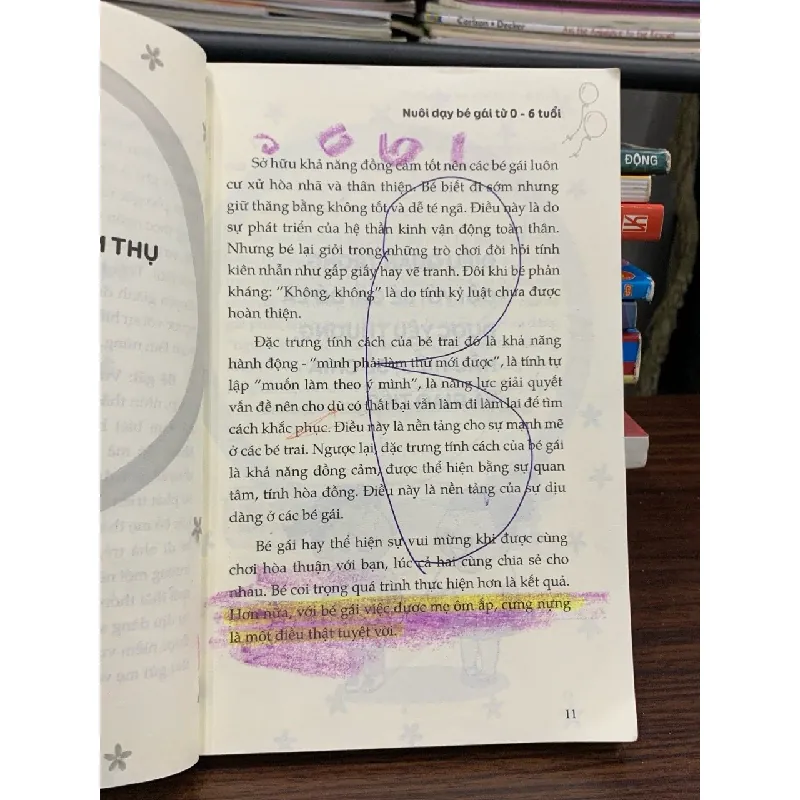 Carlson • Decker
Nuôi dạy bé gái từ 0 - 6 tuổi
ĐỘNG
M THỤ
Sở hữu khả năng đồng cảm tốt nên các bé gái luôn
cư xử hòa nhã và thân thiện. Bé biết đi sớm nhưng
giữ thăng bằng không tốt và dễ té ngã. Điều này là do
sự phát triển của hệ thần kinh vận động toàn thân.
Nhưng bé lại giỏi trong những trò chơi đòi hỏi tính
kiên nhẫn như gấp giấy hay vẽ tranh. Đôi khi bé phản
kháng: "Không, không" là do tính kỷ luật chưa được
hoàn thiện.
Đặc trưng tính cách của bé trai đó là khả năng
hành động - "mình phải làm thử mới được", là tính tự
lập "muốn làm theo ý mình", là năng lực giải quyết
vấn đề nên cho dù có thất bại vẫn làm đi làm lại để tìm
cách khắc phục. Điều này là nền tảng cho sự mạnh mẽ
ở các bé trai. Ngược lại, đặc trưng tính cách của bé gái
là khả năng đồng cảm, được thể hiện bằng sự quan
tâm, tính hòa đồng. Điều này là nền tảng của sự dịu
dàng ở các bé gái.
Bé gái hay thể hiện sự vui mừng khi được cùng
chơi hòa thuận với bạn, lúc cả hai cùng chia sẻ cho
nhau. Bé coi trọng quá trình thực hiện hơn là kết quả.
Hơn nữa, với bé gái việc được mẹ ôm ấp, cưng nựng
là một điều thật tuyệt vời.
11